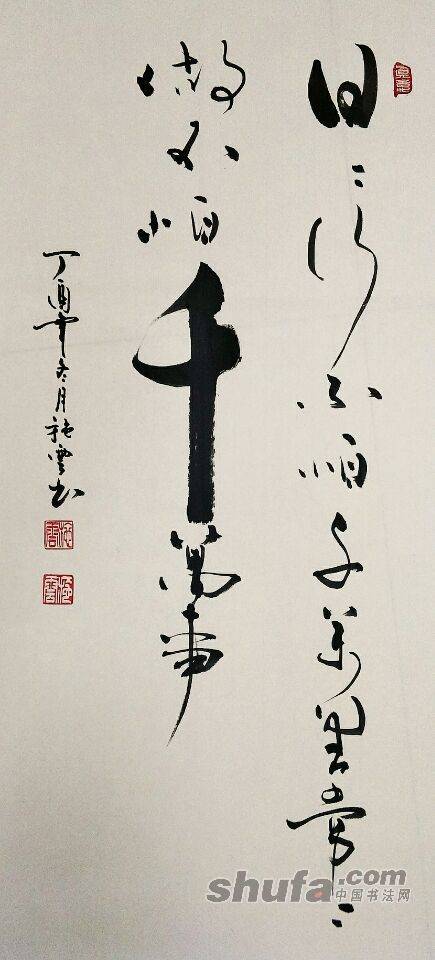 日々行不怕千万里常々
做不怕千萬事
丁酉年冬月施雲书
shufa.com
中国书法网